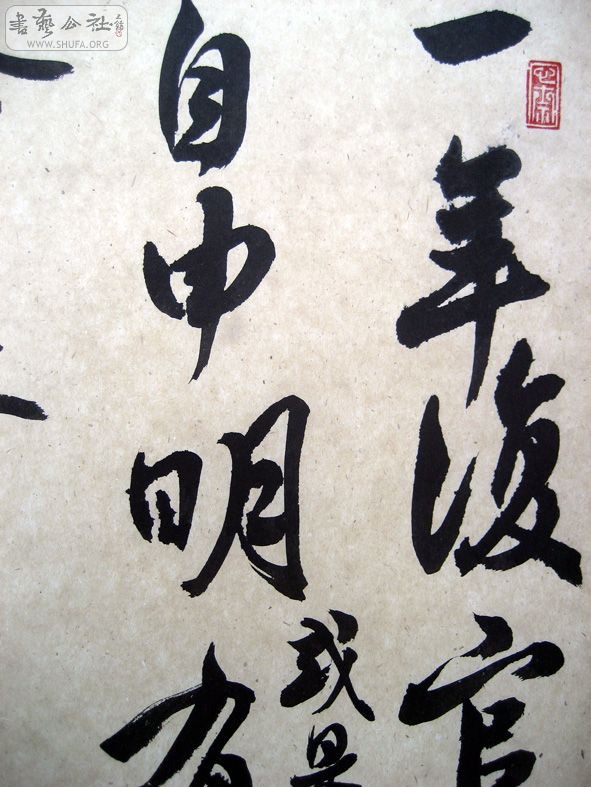 一年復官
或是
自申明有
書藝公社
WWW.SHUFA.ORG